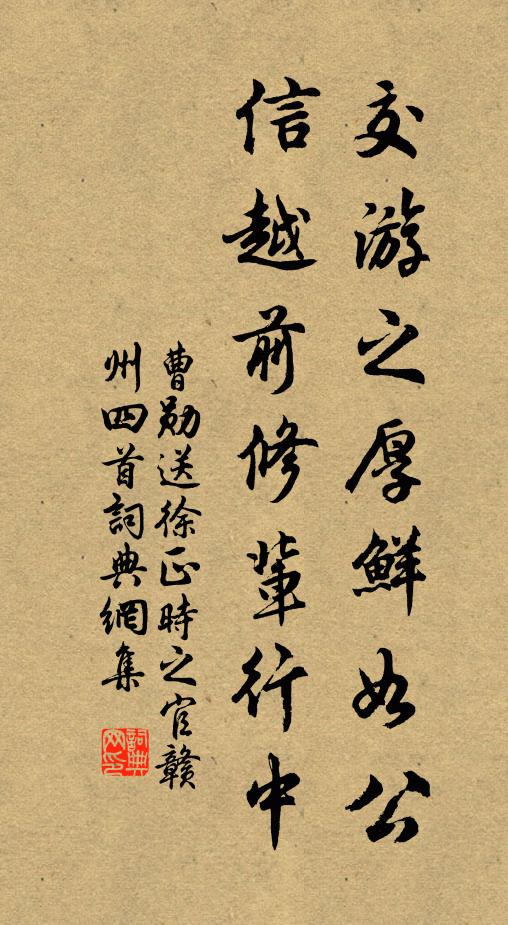 交游之厚鮮如公
信越前修輩行中
曹勛送徐正時之官贛
州四首詞典網集
詞典
网印